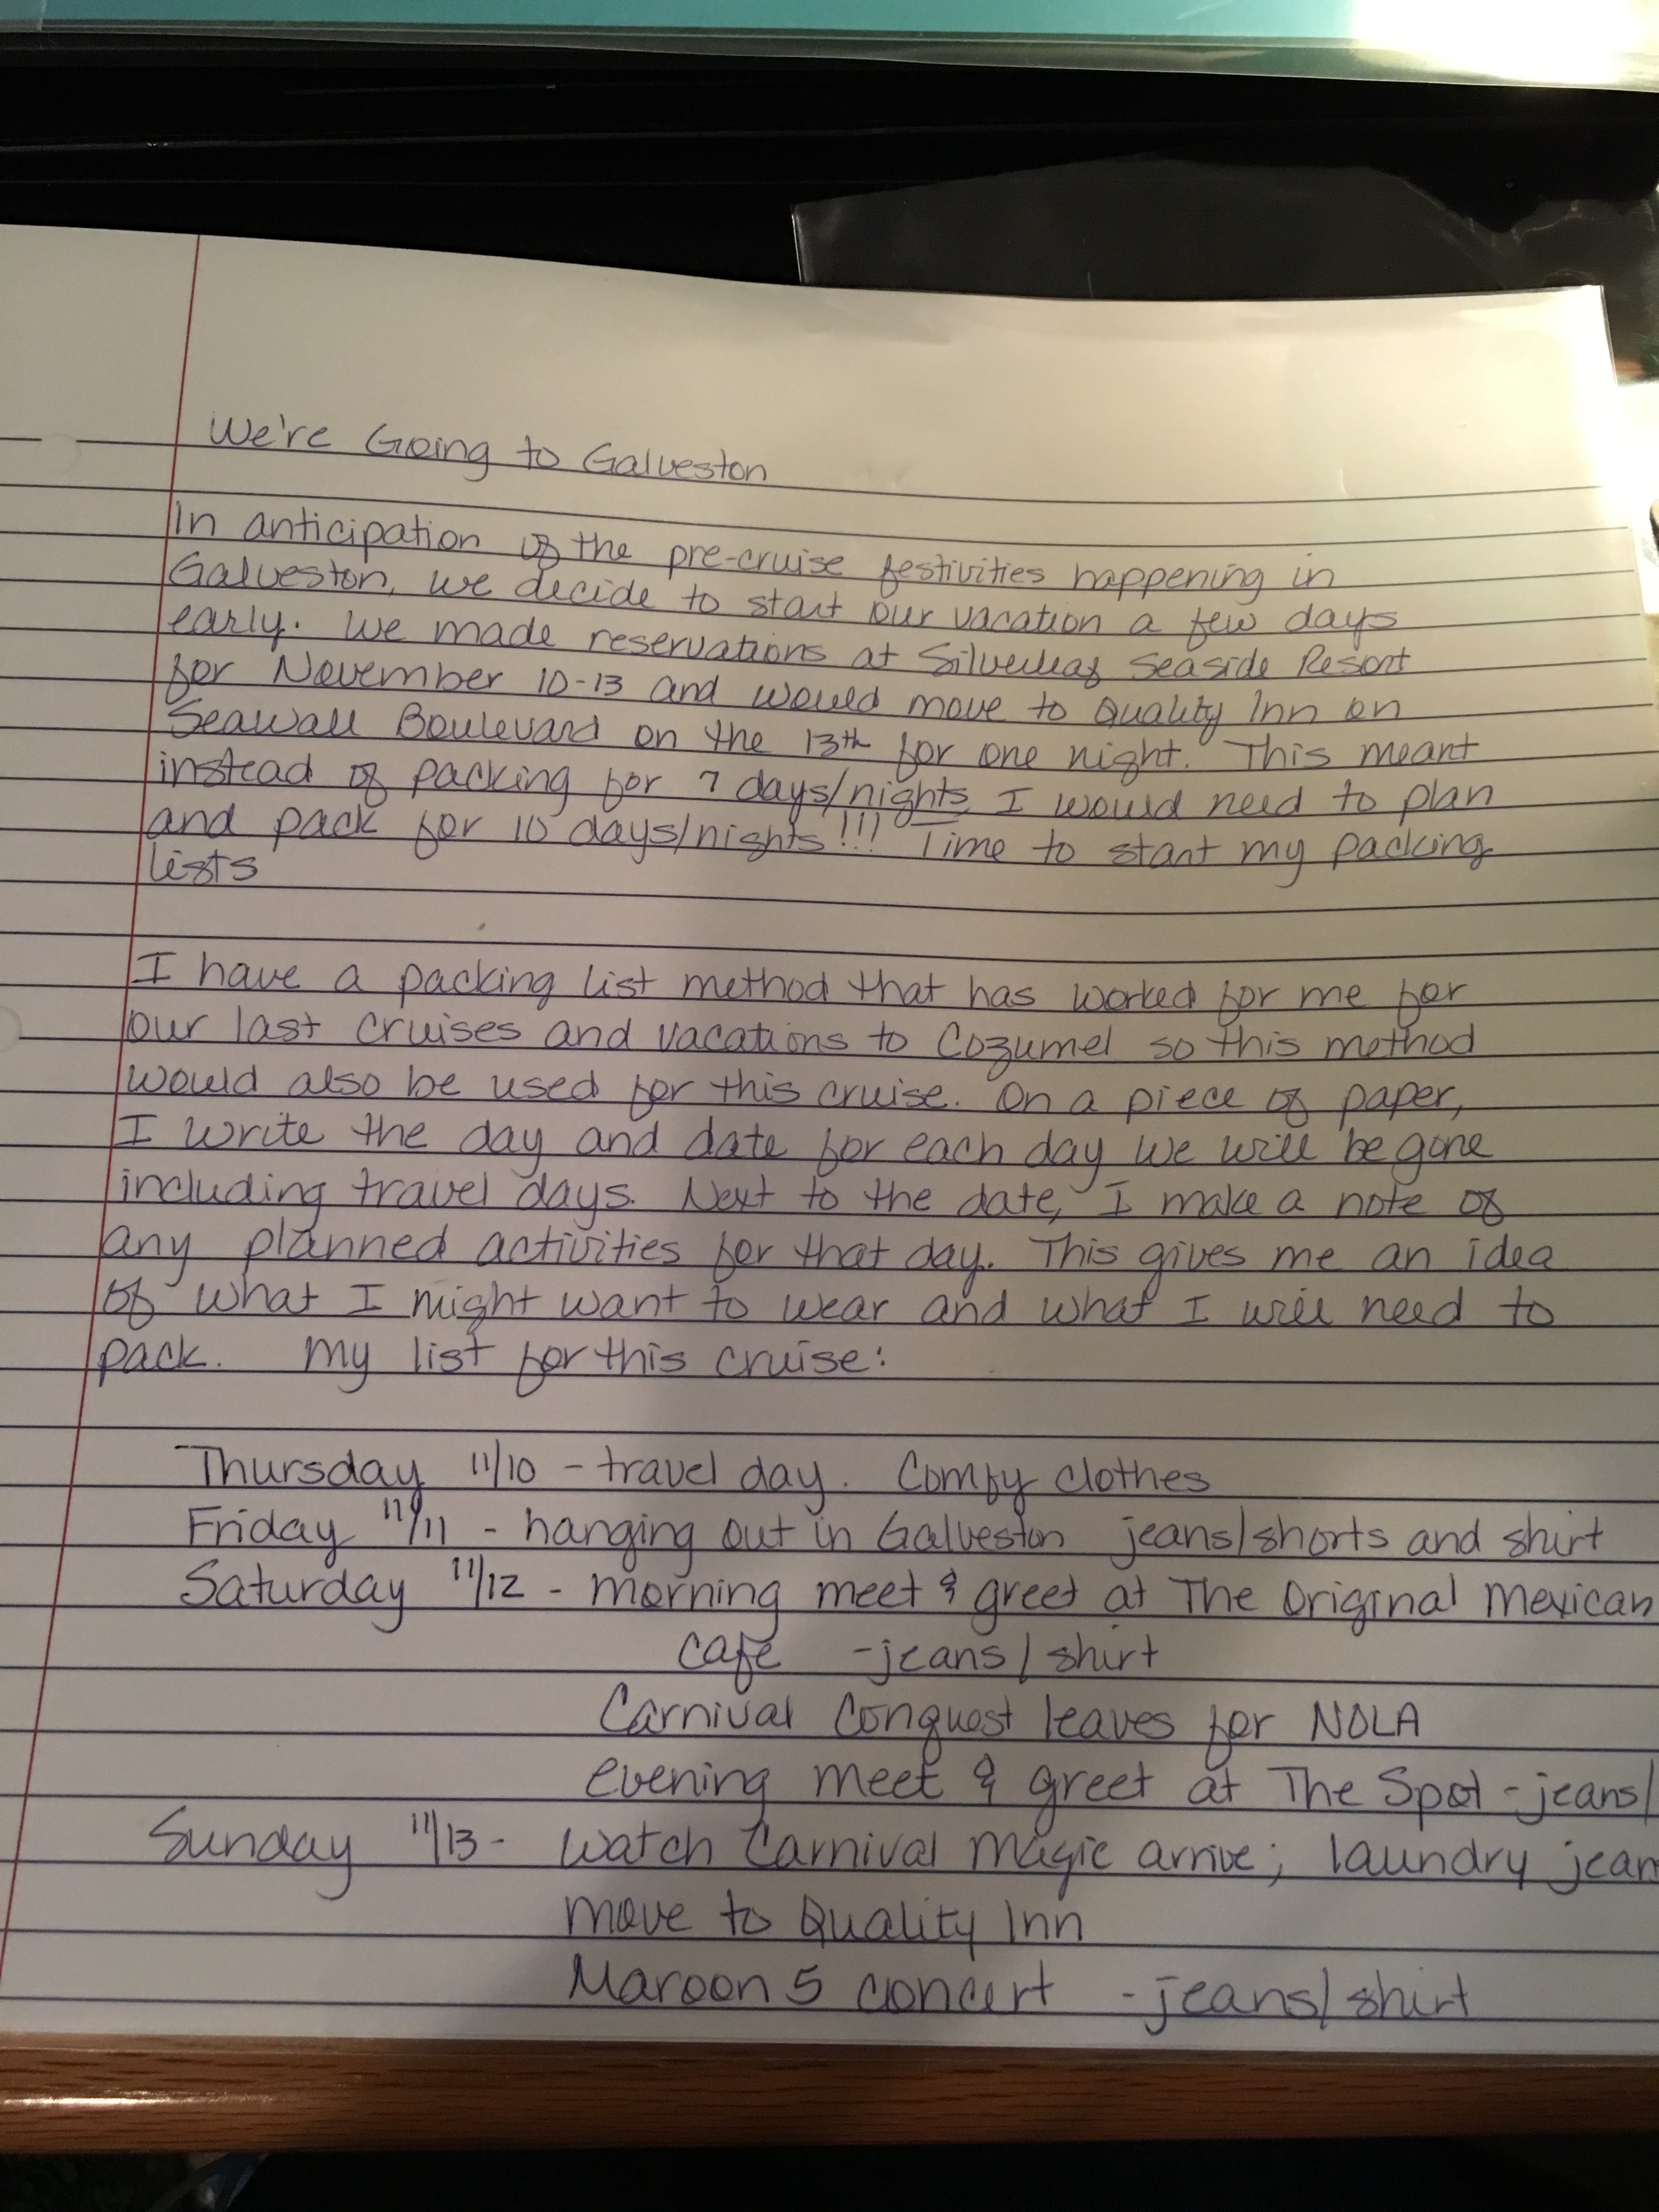 We're Going to Galveston
In anticipation of the pre-cruise festivities happening in
Galveston, we decide to start our vacation a few days
early. We made reservations at Silverleaf Seaside Resort
for November 10-13 and would move to Quality Inn on
Seawall Boulevard on the 13th for one night. This meant
instead of packing for 7 days/nights, I would need to plan
and pack for 10 days/nights!!! Time to start my packing
lists
I have a packing list method that has worked for me for
our last cruises and vacations to Cozumel so this method
would also be used for this cruise. On a piece of paper,
I write the day and date for each day we will be gone
including travel days. Next to the date, I make a note of
any planned activities for that day. This gives me an idea
of what I might want to wear and what I will need to
pack. My list for this cruise:
Thursday 11/10 - travel day. Comfy clothes
Friday 11/11 - hanging out in Galveston jeans/shorts and shirt
Saturday 11/12 - morning meet & greet at The Original Mexican
Cafe - jeans/shirt
Carnival Conquest leaves for NOLA
evening meet & greet at The Spot - jeans/
Sunday 11/13 - watch Carnival Magic arrive; laundry jean
move to Quality Inn
Maroon 5 concert - jeans/shirt